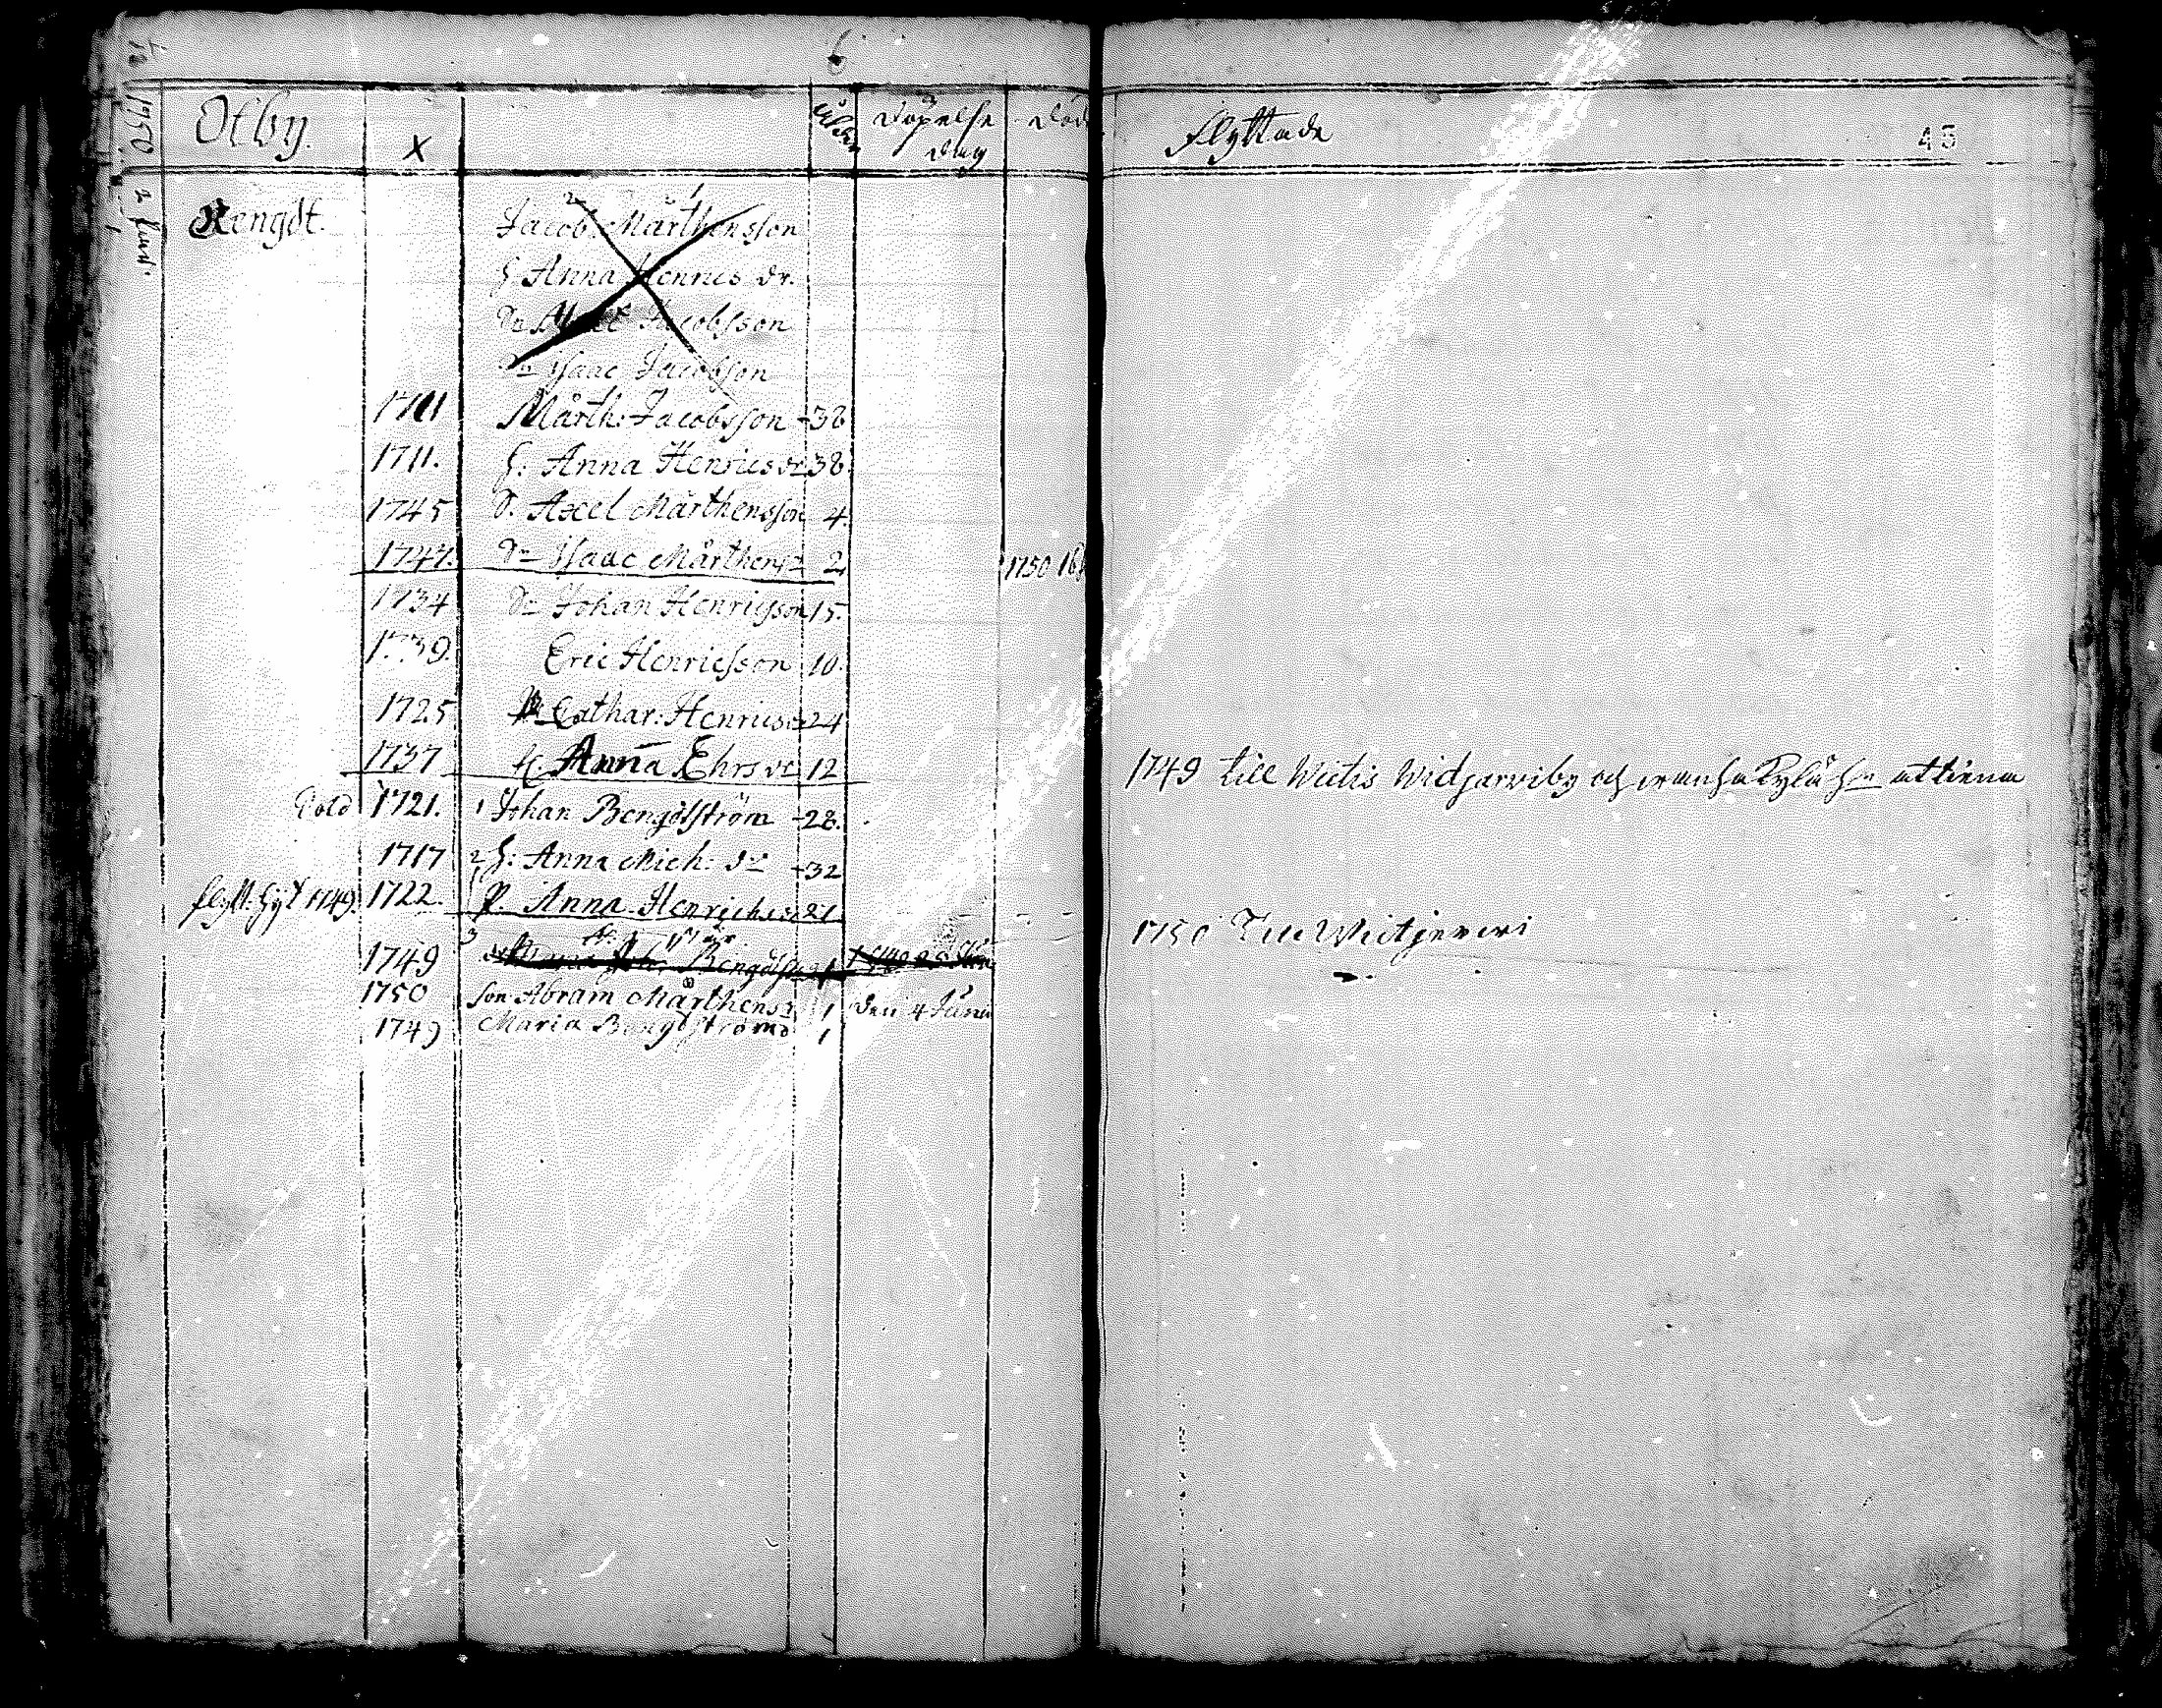 6
1750
Otby.
X
Ålder
Döpelse dag
Död
Flyttade
43
Rengdt.
Jacob Mårthensson
h Anna Henrics dr.
Dn Axel Jacobsson
Dn Isaac Jacobsson
1711 Mårth: Jacobsson 38
1711. h: Anna Henrics dr 38
1745 d. Axel Mårthensson 4.
1747. Dn Isaac Mårthens 2 1750
1734 Dn Johan Henricsson 15.
1739. Eric Henricsson 10.
1725 Cathar: Henrics dr 24
1737 Anna Ehrs dr 12 1749 till Wichis Widjarwiby och
1721. 1 Johan Bengdtström 28.
1717 2 h: Anna Mich: dr 32
flytt. hyt 1749. 1722. P. Anna Henrichs dr 21 1750 Till Wictjerwi
3
1749 Bengdtstr
1750 son Abram Mårthens 1 den 4 Junii
1749 Maria Bengdtström 1